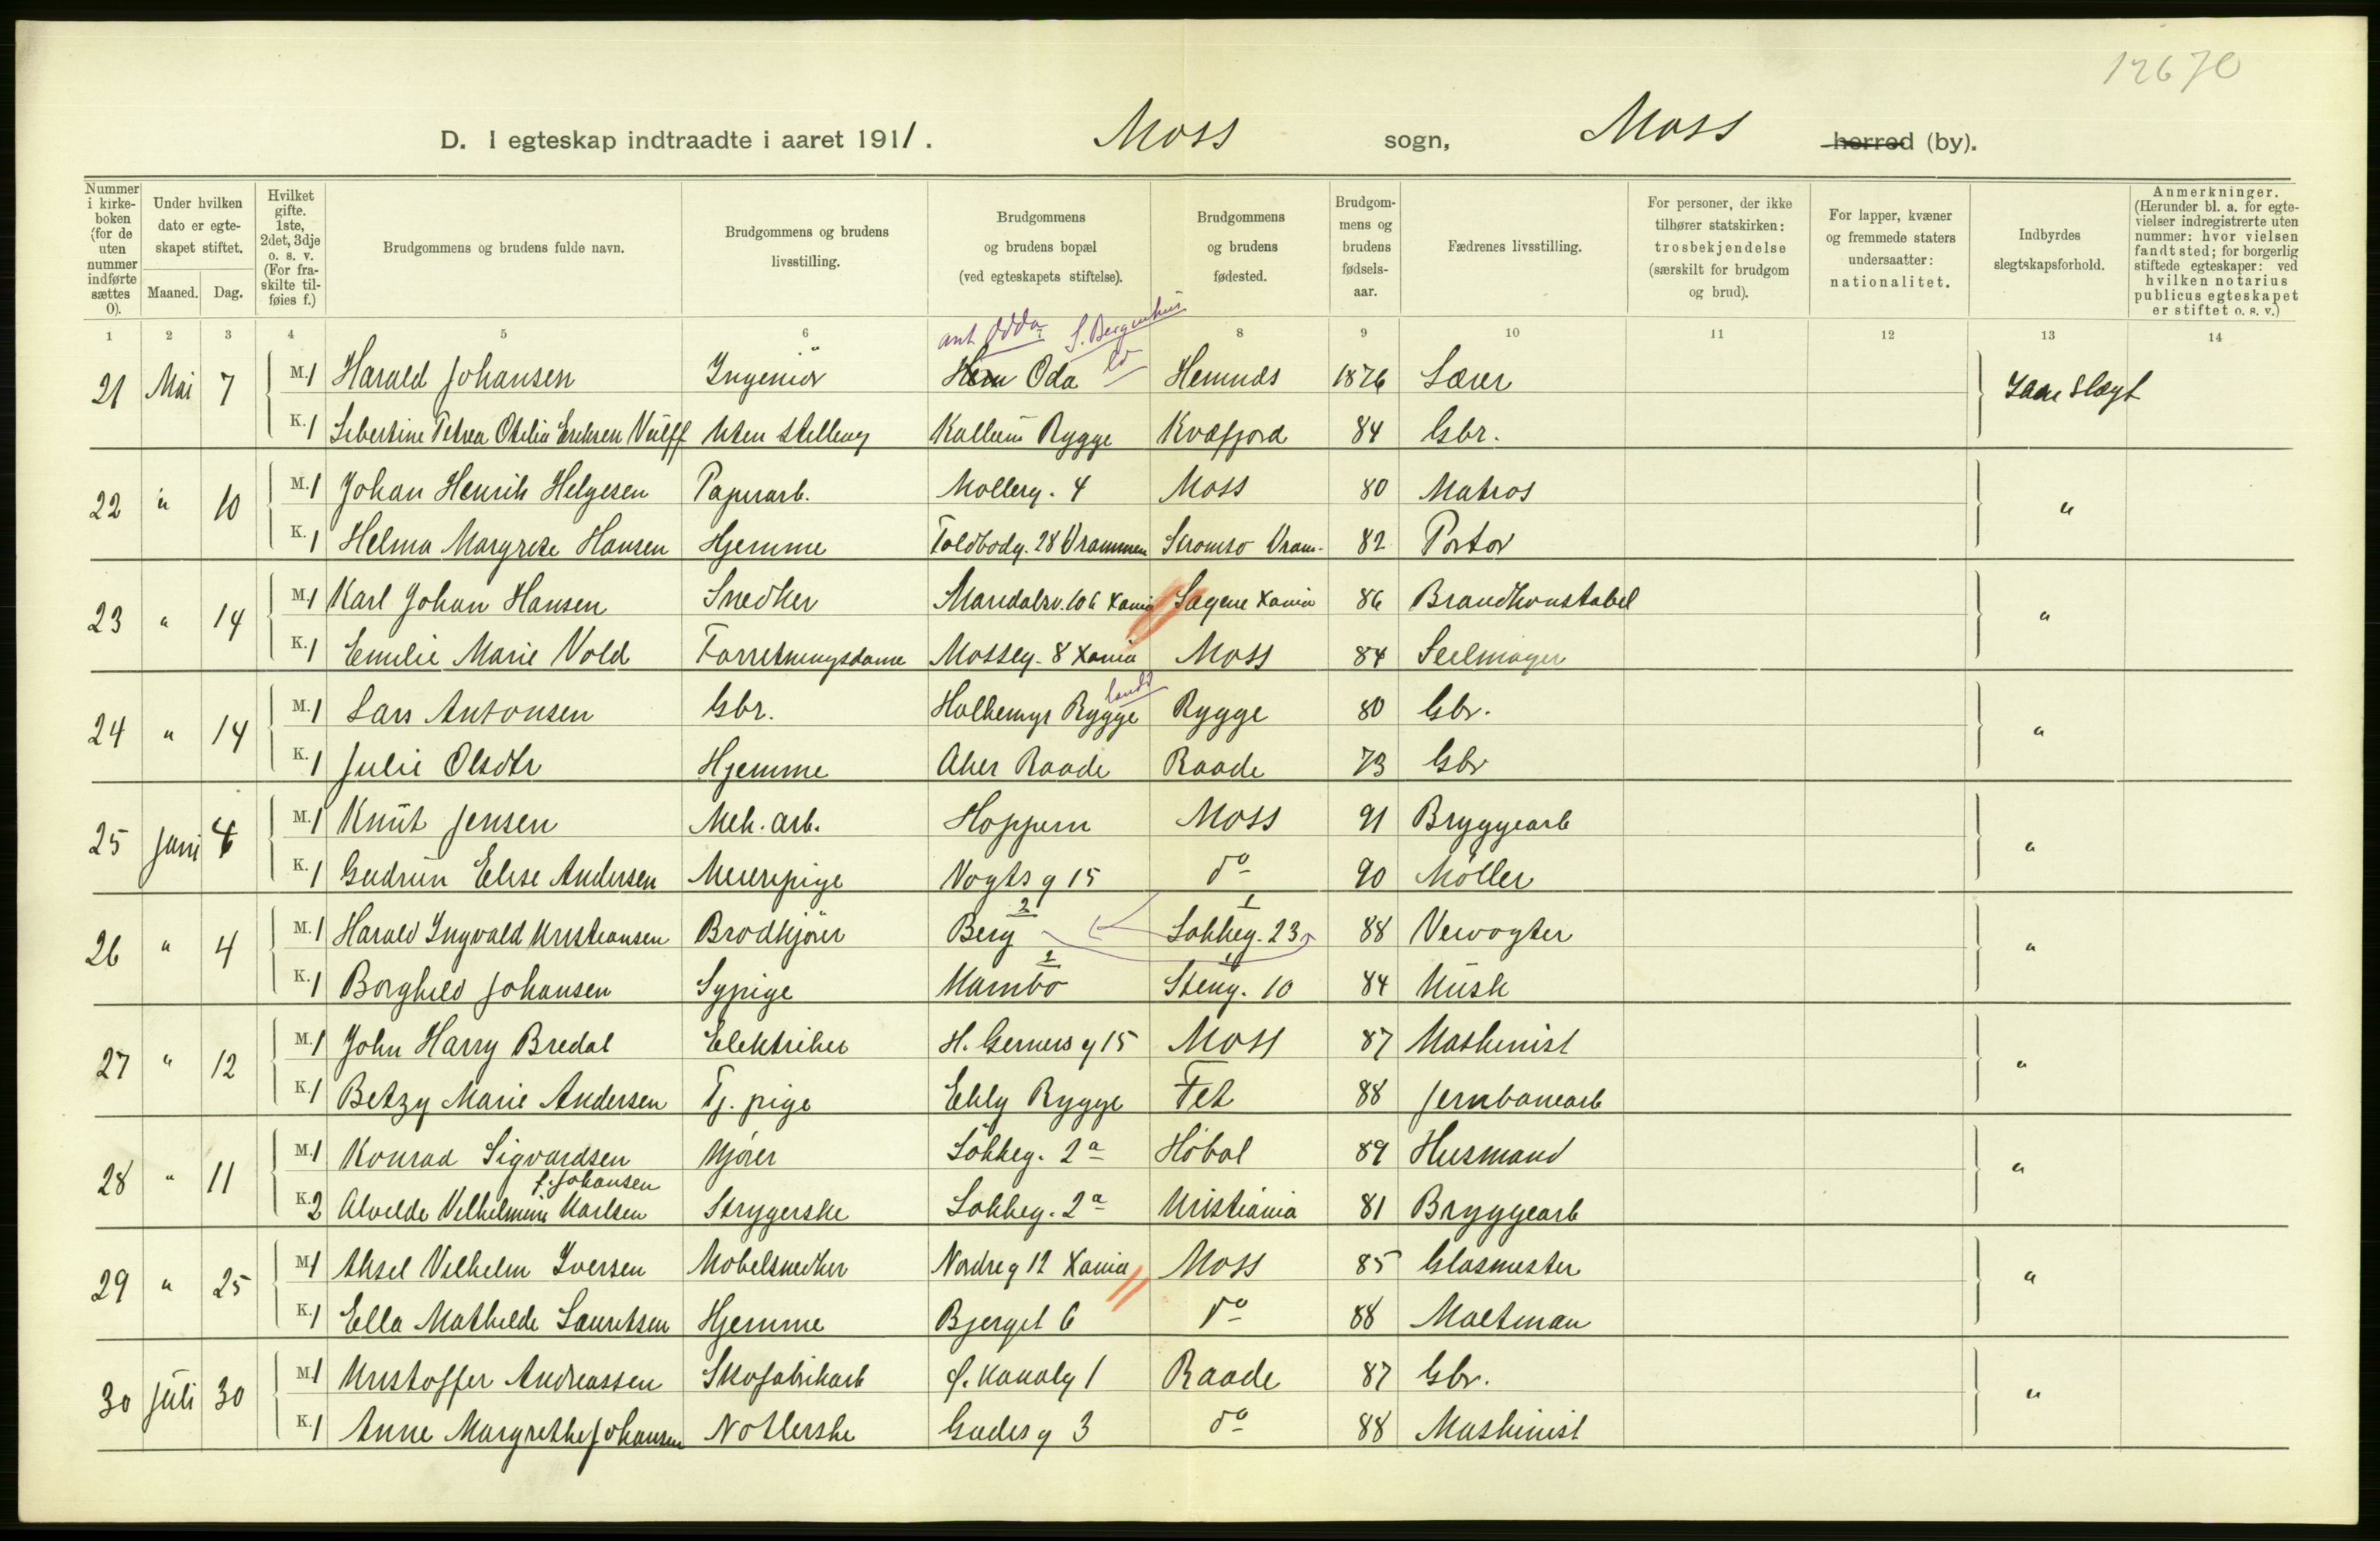 12670
D. I egteskap indtraadte i aaret 1911. Moss sogn, Moss herred (by).
Nummer i kirkeboken (for de uten nummer indførte sættes 0). Under hvilken dato er egteskapet stiftet. Maaned. Dag. Hvilket gifte. 1ste, 2det, 3dje o. s. v. (For fraskilte tilføies f.) Brudgommens og brudens fulde navn. Brudgommens og brudens livsstilling. Brudgommens og brudens bopæl (ved egteskapets stiftelse). Brudgommens og brudens fødested. Brudgommens og brudens fødselsaar. Fædrenes livsstilling. For personer, der ikke tilhører statskirken: trosbekjendelse (særskilt for brudgom og brud). For lapper, kvæner og fremmede staters undersaatter: nationalitet. Indbyrdes slegtskapsforhold. Anmerkninger. (Herunder bl. a. for egtevielser indregistrerte uten nummer: hvor vielsen fandt sted; for borgerlig stiftede egteskaper: ved hvilken notarius publicus egteskapet er stiftet o. s. v.)
1 2 3 4 5 6 8 9 10 11 12 13 14
ant Odda S. Bergenhus
21 Mai 7 M. 1 Harald Johansen Ingeniör Oda Hemnes 1876 Lærer
K. 1 Libertine Petrea Otilia Eriksen Wulff Uten Stilling Kallum Rygge Kvæfjord 84 Gbr.
22 " 10 M. 1 Johan Henrik Helgesen Papirarb. Mollerg. 4 Moss 80 Matros "
K. 1 Helma Margrete Hansen Hjemme Toldbodg. 28 Drammen Stromso Dram. 82 Portor
23 " 14 M. 1 Karl Johan Hansen Snedker Maridalsv. 106 Xania Sagene Xania 86 Brandkonstabel "
K. 1 Emilie Marie Vold Forretningsdame Mosseg. 8 Xania Moss 84 Seilmager
24 " 14 M. 1 Lars Antonsen Gbr. Halkemyr Rygge Rygge 80 Gbr. "
K. 1 Julie Olsdtr Hjemme Aker Raade Raade 73 Gbr
25 Juni 4 M. 1 Knut Jensen Mek. arb. Hoppern Moss 91 Bryggearb "
K. 1 Gudrun Elise Andersen Meieripige Vogts g 15 do 90 Möller
26 " 4 M. 1 Harald Ingvald Kristiansen Brodkjörer Berg 2 Lokkeg. 23 1 88 Veivogter "
K. 1 Borghild Johansen Sypige Kambo 2 Steng. 10 84 Kusk
27 " 12 M. 1 John Harry Bredal Elektriker H. Gerners g 15 Moss 87 Maskinist "
K. 1 Betzy Marie Andersen Tj. pige Ekly Rygge Fet 88 Jernbanearb
28 " 11 M. 1 Konrad Sigvardsen Kjörer Lökkeg. 2a Höbol 89 Husmand "
f. Johansen
K. 2 Alvilde Vilhelmine Karlsen Strygerske Lokkeg. 2a Kristiania 81 Bryggearb
29 " 25 M. 1 Aksel Vilhelm Iversen Mobelsnedker Nordre g 12 Xania Moss 85 Glasmester "
K. 1 Ella Mathilde Lauritsen Hjemme Bjerget 6 do 88 Maltman
30 Juli 30 M. 1 Kristoffer Andreassen Skofabrikarb Ö. Kanalg 1 Raade 87 Gbr. "
K. 1 Anne Margrethe Johansen Notlerske Gudes g 3 do 88 Maskinist